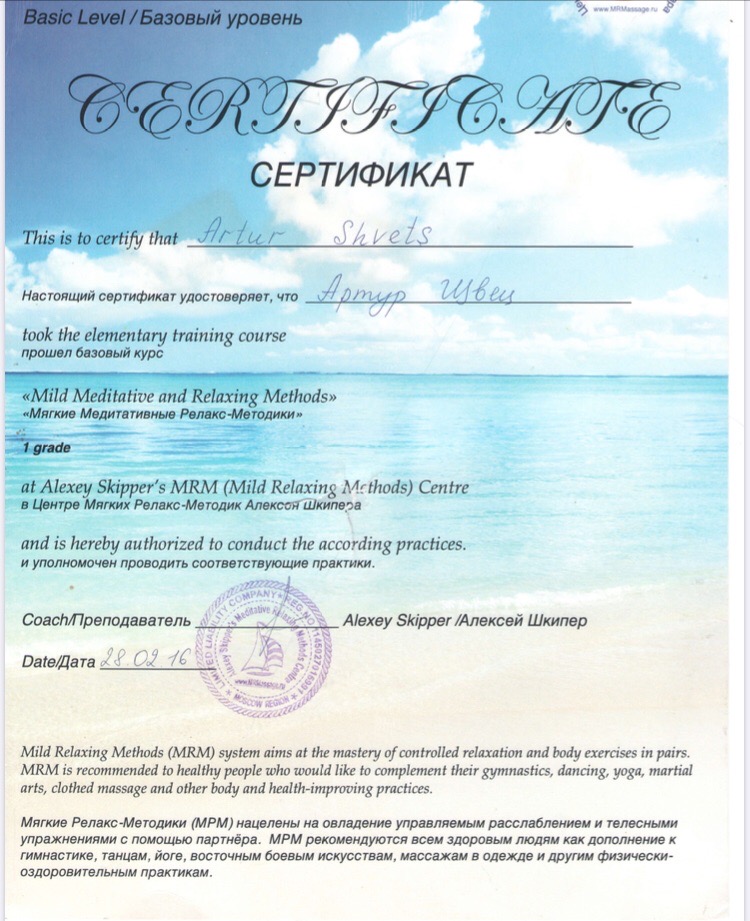 Basic Level / Базовый уровень
www.MRMassage.ru
CERTIFICATE
СЕРТИФИКАТ
This is to certify that Artur Shvets
Настоящий сертификат удостоверяет, что Артур Швец
took the elementary training course
прошел базовый курс
«Mild Meditative and Relaxing Methods»
«Мягкие Медитативные Релакс-Методики»
1 grade
at Alexey Skipper's MRM (Mild Relaxing Methods) Centre
в Центре Мягких Релакс-Методик Алексея Шкипера
and is hereby authorized to conduct the according practices.
и уполномочен проводить соответствующие практики.
Coach/Преподаватель Alexey Skipper /Алексей Шкипер
LIMITED LIABILITY COMPANY
Alexey Skipper's Meditative Relaxing Methods Centre
MOSCOW REGION
Date/Дата 28.02 16
Mild Relaxing Methods (MRM) system aims at the mastery of controlled relaxation and body exercises in pairs.
MRM is recommended to healthy people who would like to complement their gymnastics, dancing, yoga, martial
arts, clothed massage and other body and health-improving practices.
Мягкие Релакс-Методики (МРМ) нацелены на овладение управляемым расслаблением и телесными
упражнениями с помощью партнёра. МРМ рекомендуются всем здоровым людям как дополнение к
гимнастике, танцам, йоге, восточным боевым искусствам, массажам в одежде и другим физически-
оздоровительным практикам.